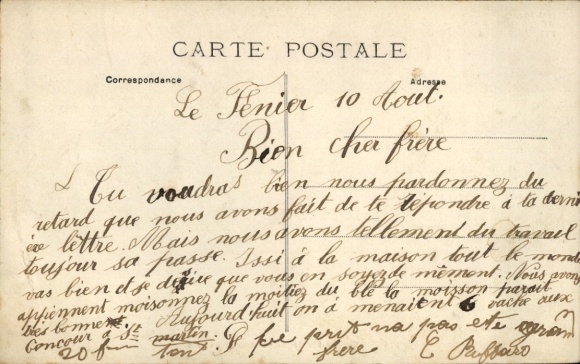 CARTE POSTALE
Correspondance
Adresse
Le Fénier 10 Aout.
Bien cher frère
Tu voudras bien nous pardonnez du
retard que nous avons fait de te repondre à ta derni
ère lettre. Mais nous avons tellement du travail
toujour sa passe. Issi à la maison tout le monde
vas bien et se désire que vous en soyez de mèment. Nous avons
appiennent moisonnez la moitiez du blé la moisson parait
très bonne Aujourd'huit on à menaient 6 vache aux
concour à St martin. Le prit na pas ete gran
20 f ton frère